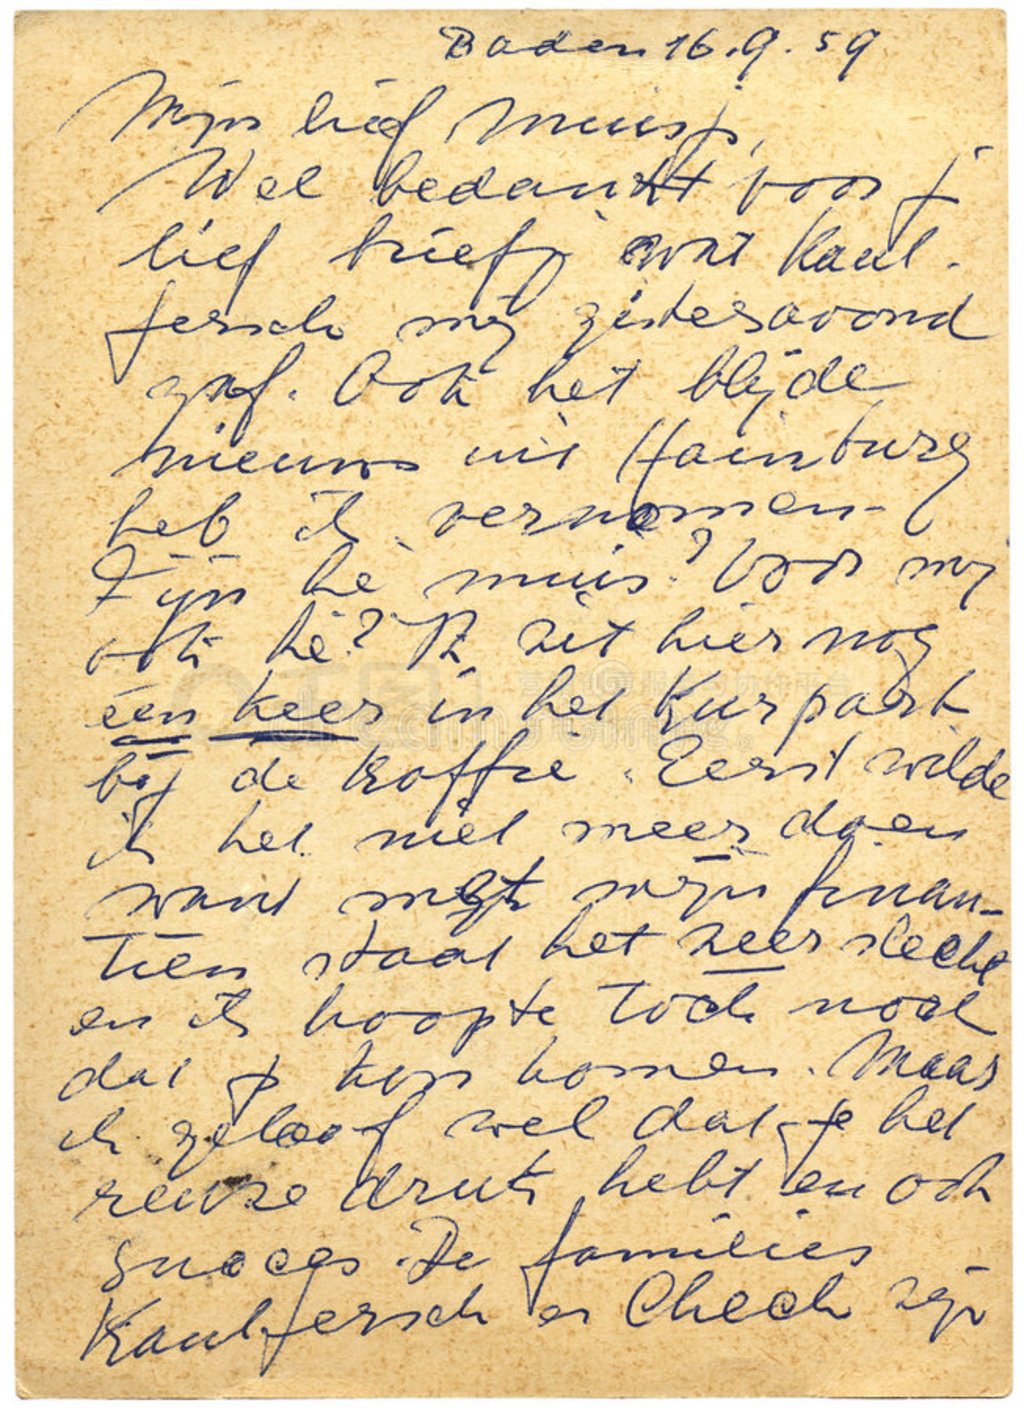 Baden 16.9.59
Mijn lief muisj,
Wel bedankt voor j
lief briefj wat Kaul-
fersch mij gisteravond
gaf. Ook het blijde
nieuws uit Hainburg
heb ik vernomen.
Fijn hè muis? Voor mij
ook hè? Ik zit hier nog
één keer in het Kurpark
bij de koffie. Eerst wilde
ik het niet meer doen
want met mijn finan-
tien staat het zeer slecht
en ik hoopte toch nooit
dat j kon komen. Maar
ik geloof wel dat je het
reuze druk hebt en ook
succes. De families
Kaulfersch en Chech zijn